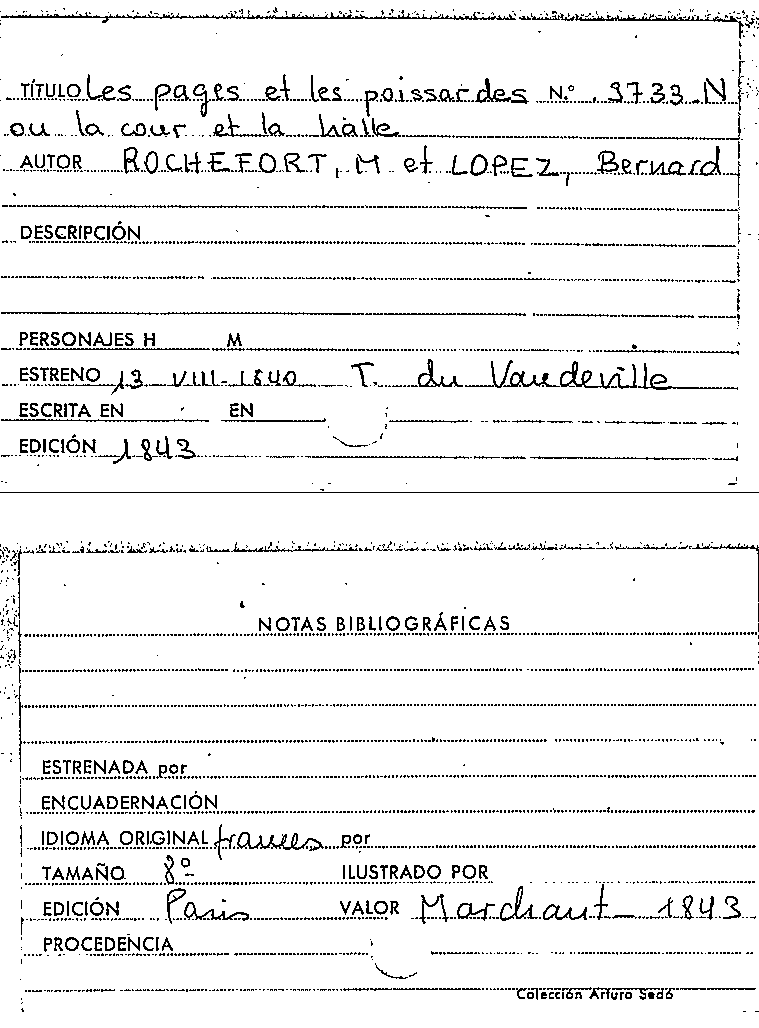 TÍTULO Les pages et les poissardes N.º 3733-N
ou la cour et la halle
AUTOR ROCHEFORT, M et LOPEZ, Bernard
DESCRIPCIÓN
PERSONAJES H M
ESTRENO 13 VIII-1840 T. du Vaudeville
ESCRITA EN EN
EDICIÓN 1843
NOTAS BIBLIOGRÁFICAS
ESTRENADA por
ENCUADERNACIÓN
IDIOMA ORIGINAL frances por
TAMAÑO 8º ILUSTRADO POR
EDICIÓN Paris VALOR Marchant - 1843
PROCEDENCIA
Colección Arturo Sedó